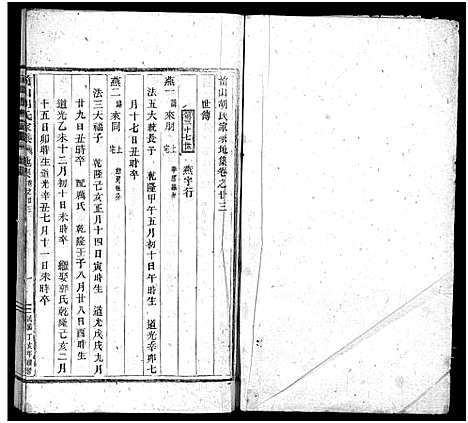 首山胡氏家乘地集卷之廿三
世傳
第三十七世 燕字行
燕一 諱來朋 宅上
法五大就長子 乾隆甲午五月初十日午時生 道光辛卯七
月十七日丑時卒
燕二 諱來同 宅上
法三大福子 乾隆己亥正月十四日寅時生 道光戊戌九月
廿九日丑時卒 配 氏 乾隆壬子八月廿八日酉時生
道光乙未十二月初十日未時卒 繼娶郭氏乾隆己亥二月
十五日卯時生道光辛丑七月十一日未時卒